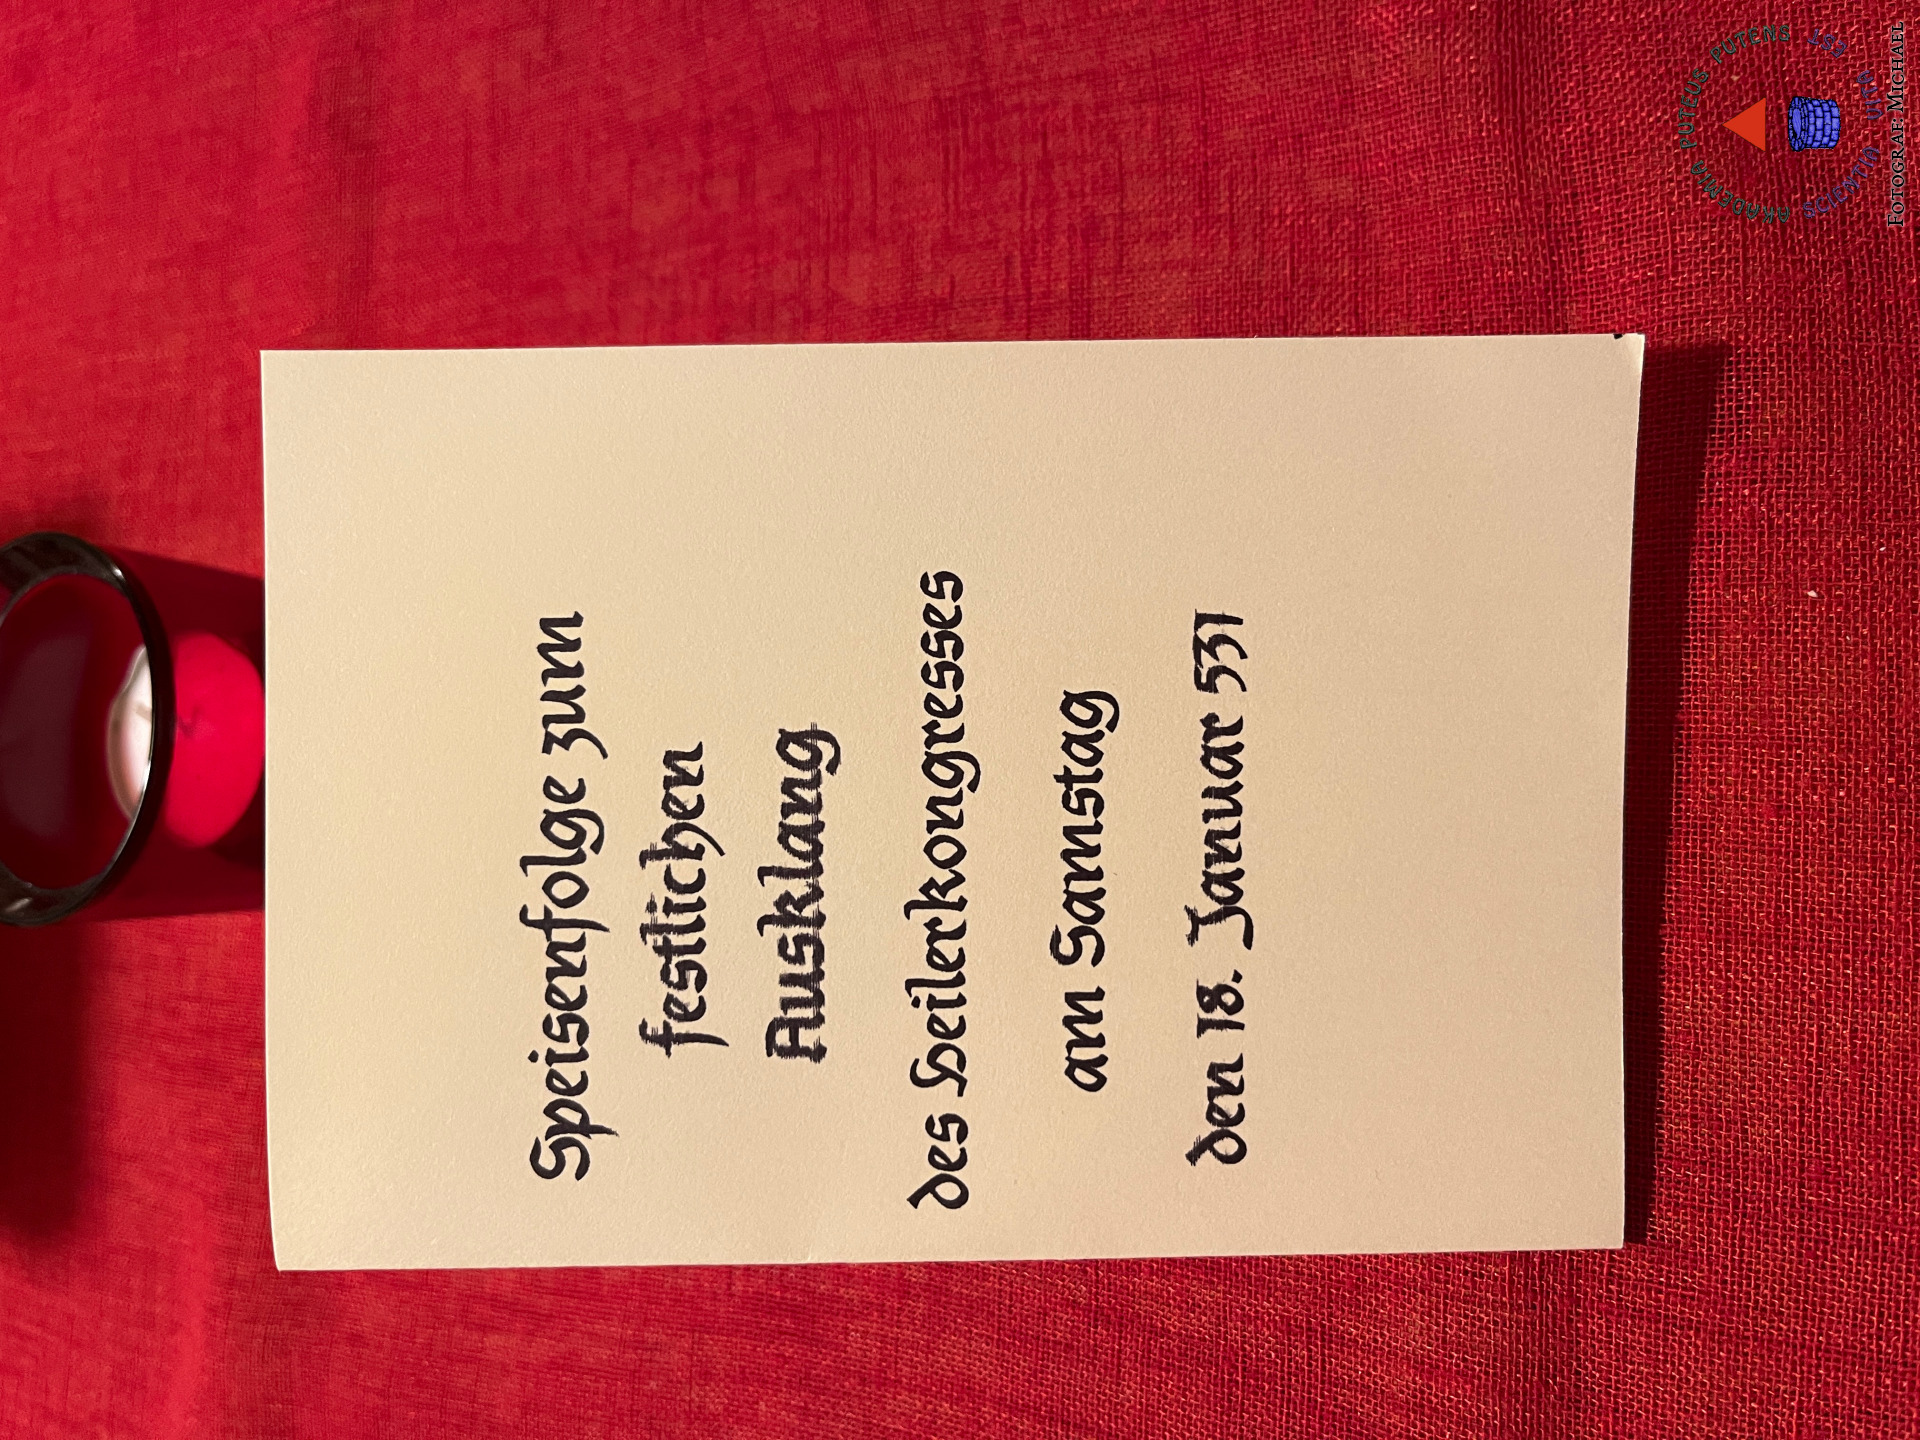 Speisenfolge zum
festlichen
Ausklang
des Heilerkongresses
am Samstag
den 18. Januar 531
AKADEMIA PUTEUS PUTENS EST
SCIENTIA VITA
Fotograf: Michael